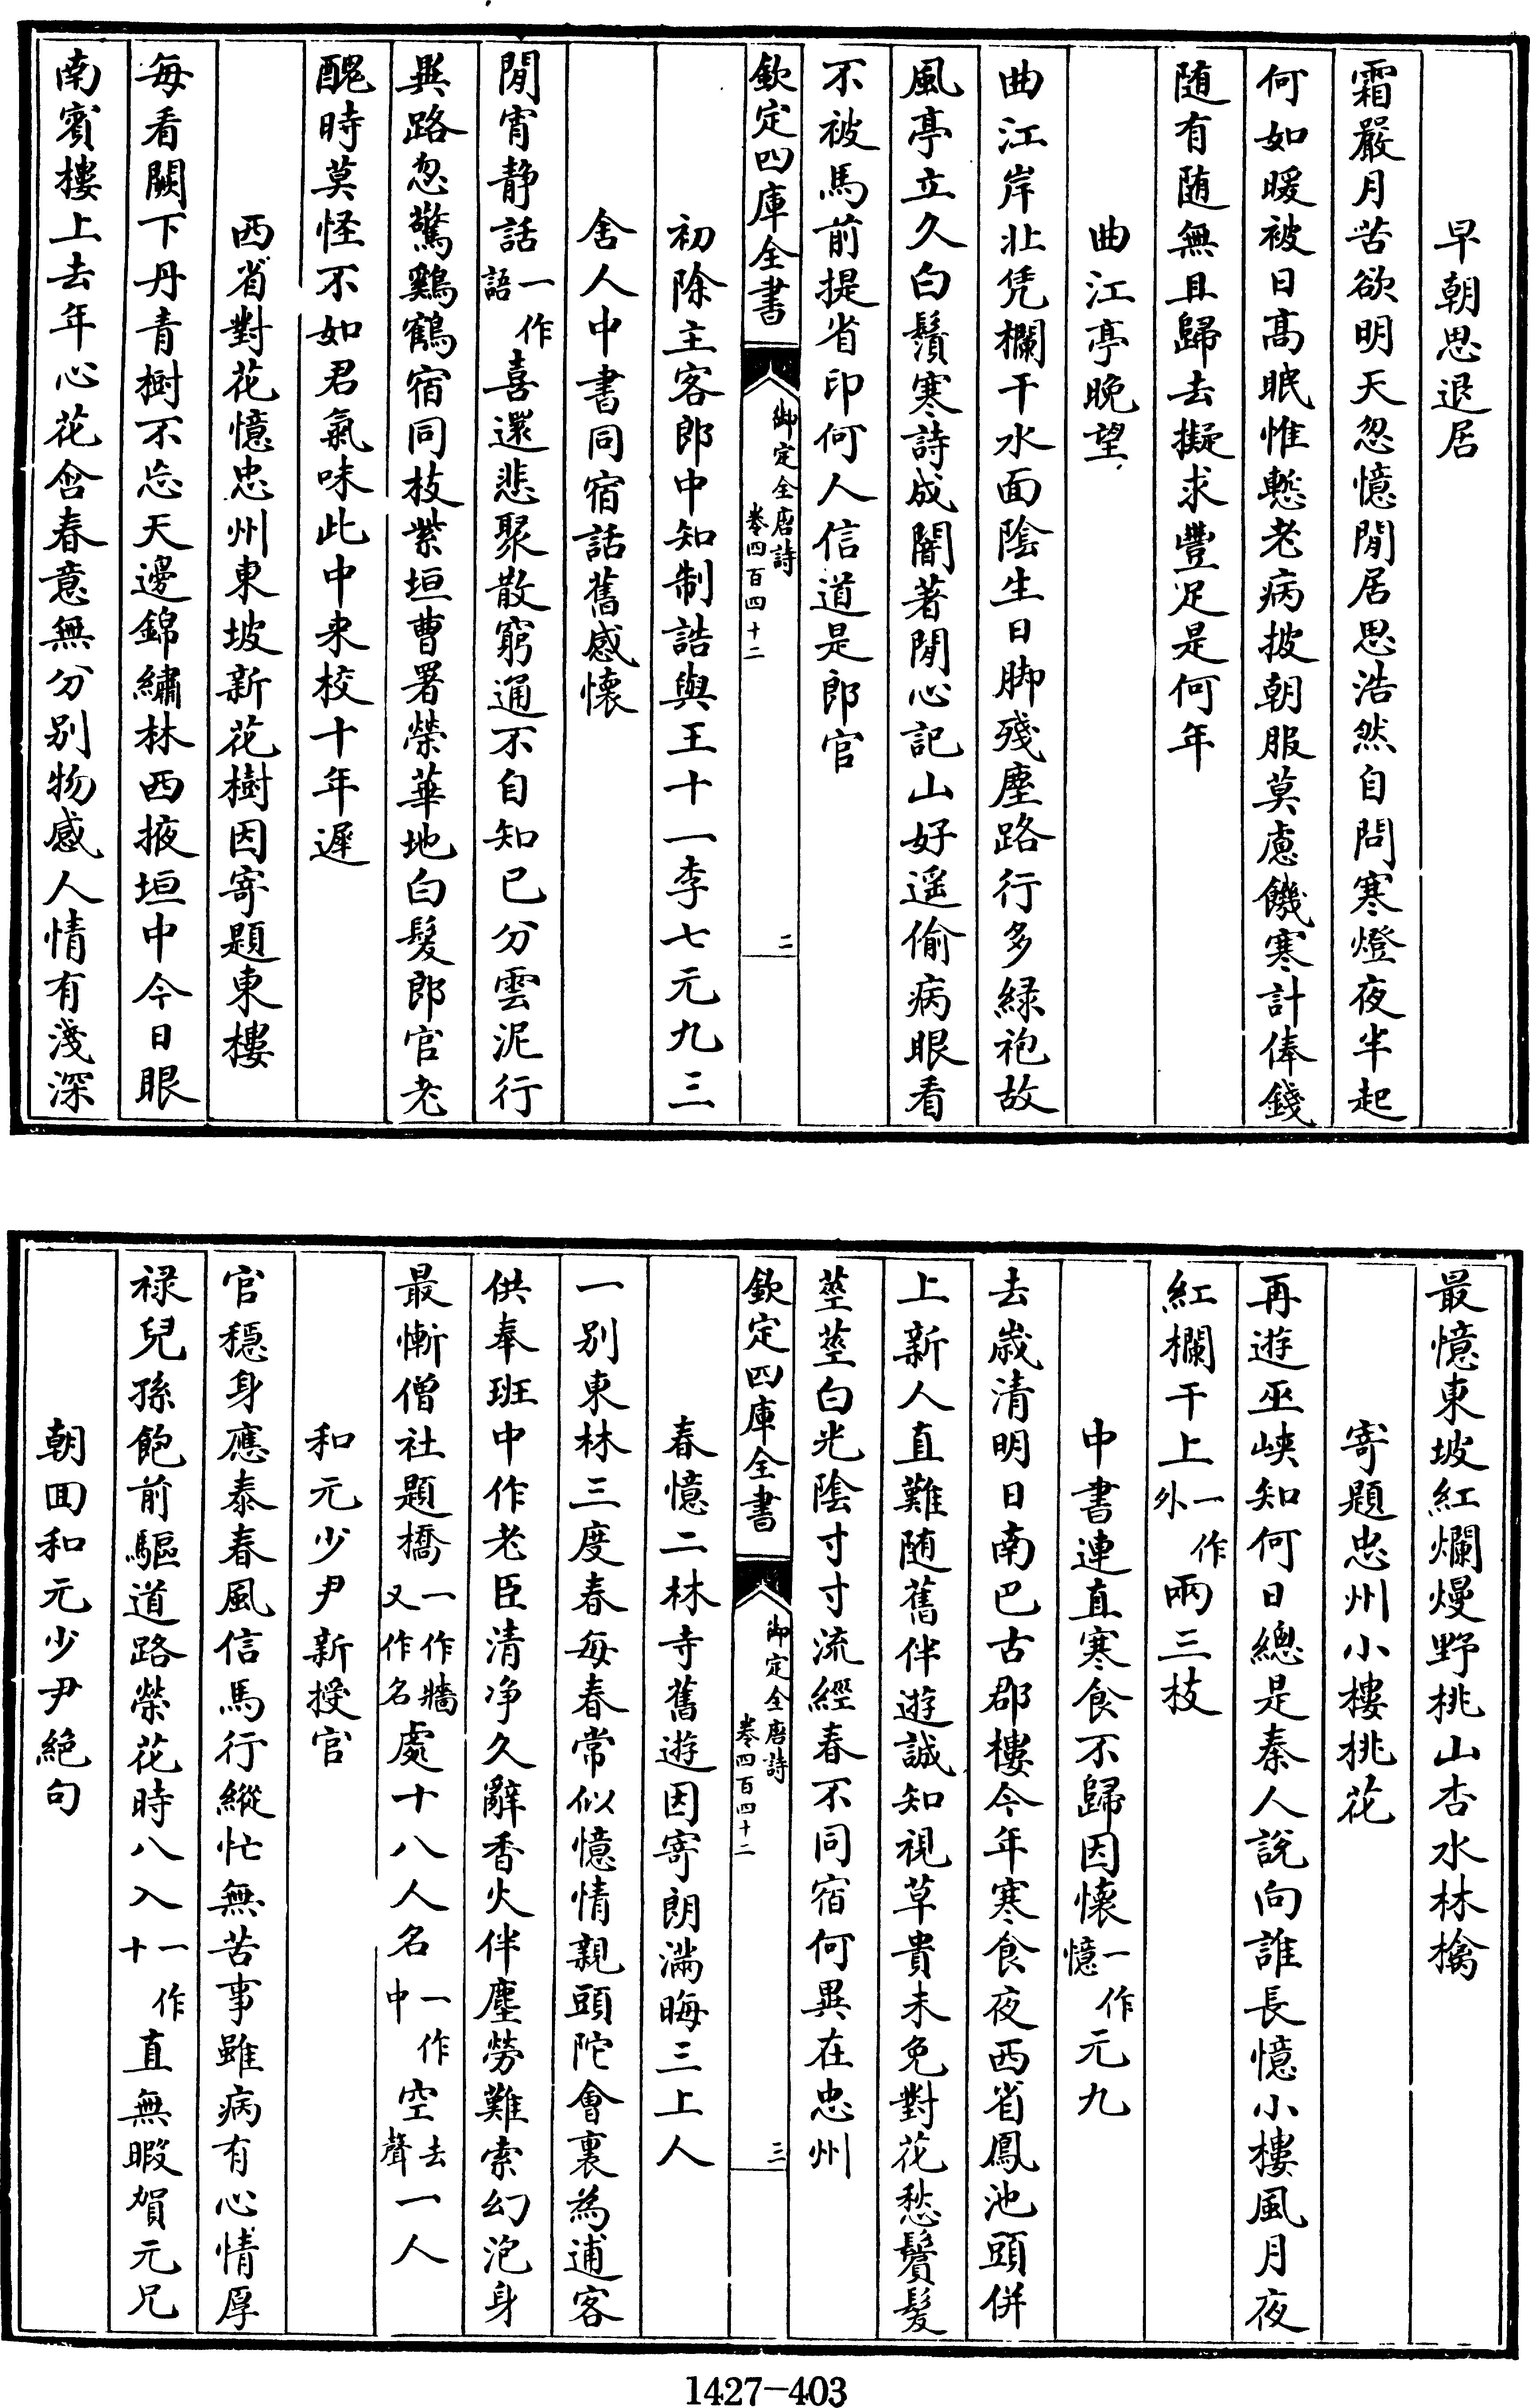 早朝思退居
霜嚴月苦欲明天忽憶閒居思浩然自問寒燈夜半起
何如暖被日髙眠惟慙老病披朝服莫慮饑寒計俸錢
随有随無且歸去擬求豐足是何年
曲江亭晚望
曲江岸北凭欄干水面陰生日脚殘塵路行多緑袍故
風亭立久白鬚寒詩成闇著閒心記山好遥偷病眼看
不被馬前提省印何人信道是郎官
欽定四庫全書
御定全唐詩
卷四百四十二
二
初除主客郎中知制誥與王十一李七元九三
舍人中書同宿話舊感懷
閒宵静話一作語喜還悲聚散窮通不自知已分雲泥行
異路忽驚鷄鶴宿同枝紫垣曹署榮華地白髮郎官老
醜時莫怪不如君氣味此中来校十年遲
西省對花憶忠州東坡新花樹因寄題東樓
每看闕下丹青樹不忘天邊錦繡林西掖垣中今日眼
南賓樓上去年心花含春意無分别物感人情有淺深
最憶東坡紅爛熳野桃山杏水林檎
寄題忠州小樓桃花
再遊巫峡知何日總是秦人説向誰長憶小樓風月夜
紅欄干上一作外兩三枝
中書連直寒食不歸因懷一作憶元九
去歲清明日南巴古郡樓今年寒食夜西省鳳池頭併
上新人直難随舊伴遊誠知視草貴未免對花愁鬢髮
莖莖白光陰寸寸流經春不同宿何異在忠州
欽定四庫全書
御定全唐詩
卷四百四十二
三
春憶二林寺舊遊因寄朗滿晦三上人
一别東林三度春每春常似憶情親頭陀會裏為逋客
供奉班中作老臣清净久辭香火伴塵勞難索幻泡身
最慚僧社題橋一作牆又作名處十八人名一作中空去聲一人
和元少尹新授官
官穏身應泰春風信馬行縱忙無苦事雖病有心情厚
禄兒孫飽前驅道路榮花時八入一作十直無暇賀元兄
朝回和元少尹絶句
1427-403